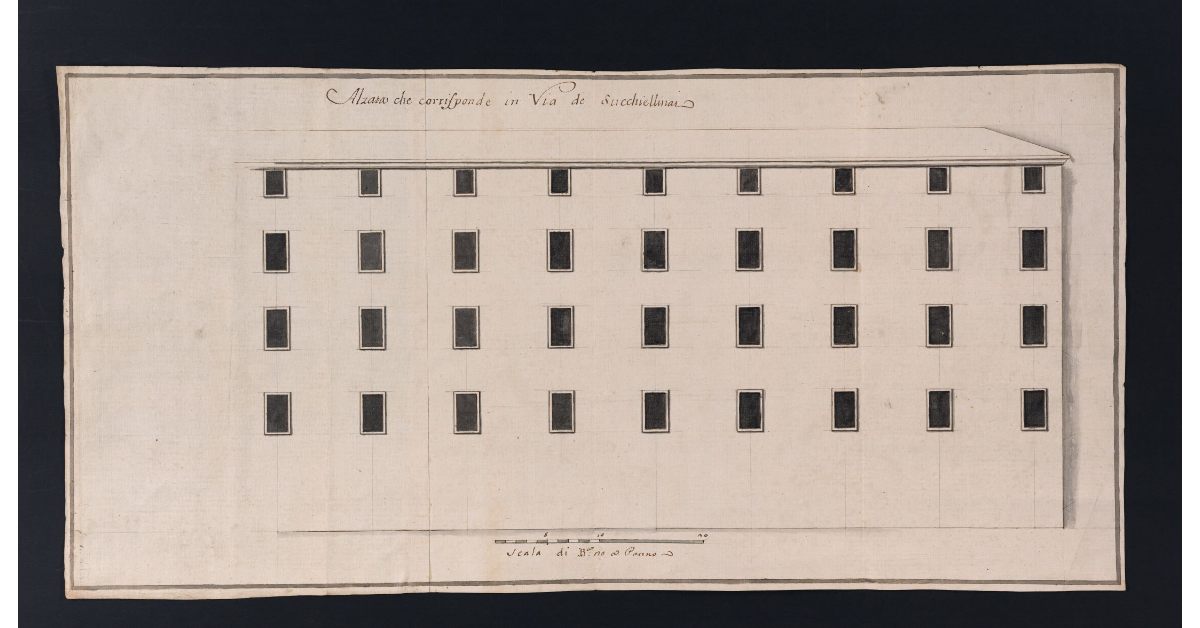 Alzata che corrisponde in Via de Succhiellinai
5 10 20
Scala di B.ª